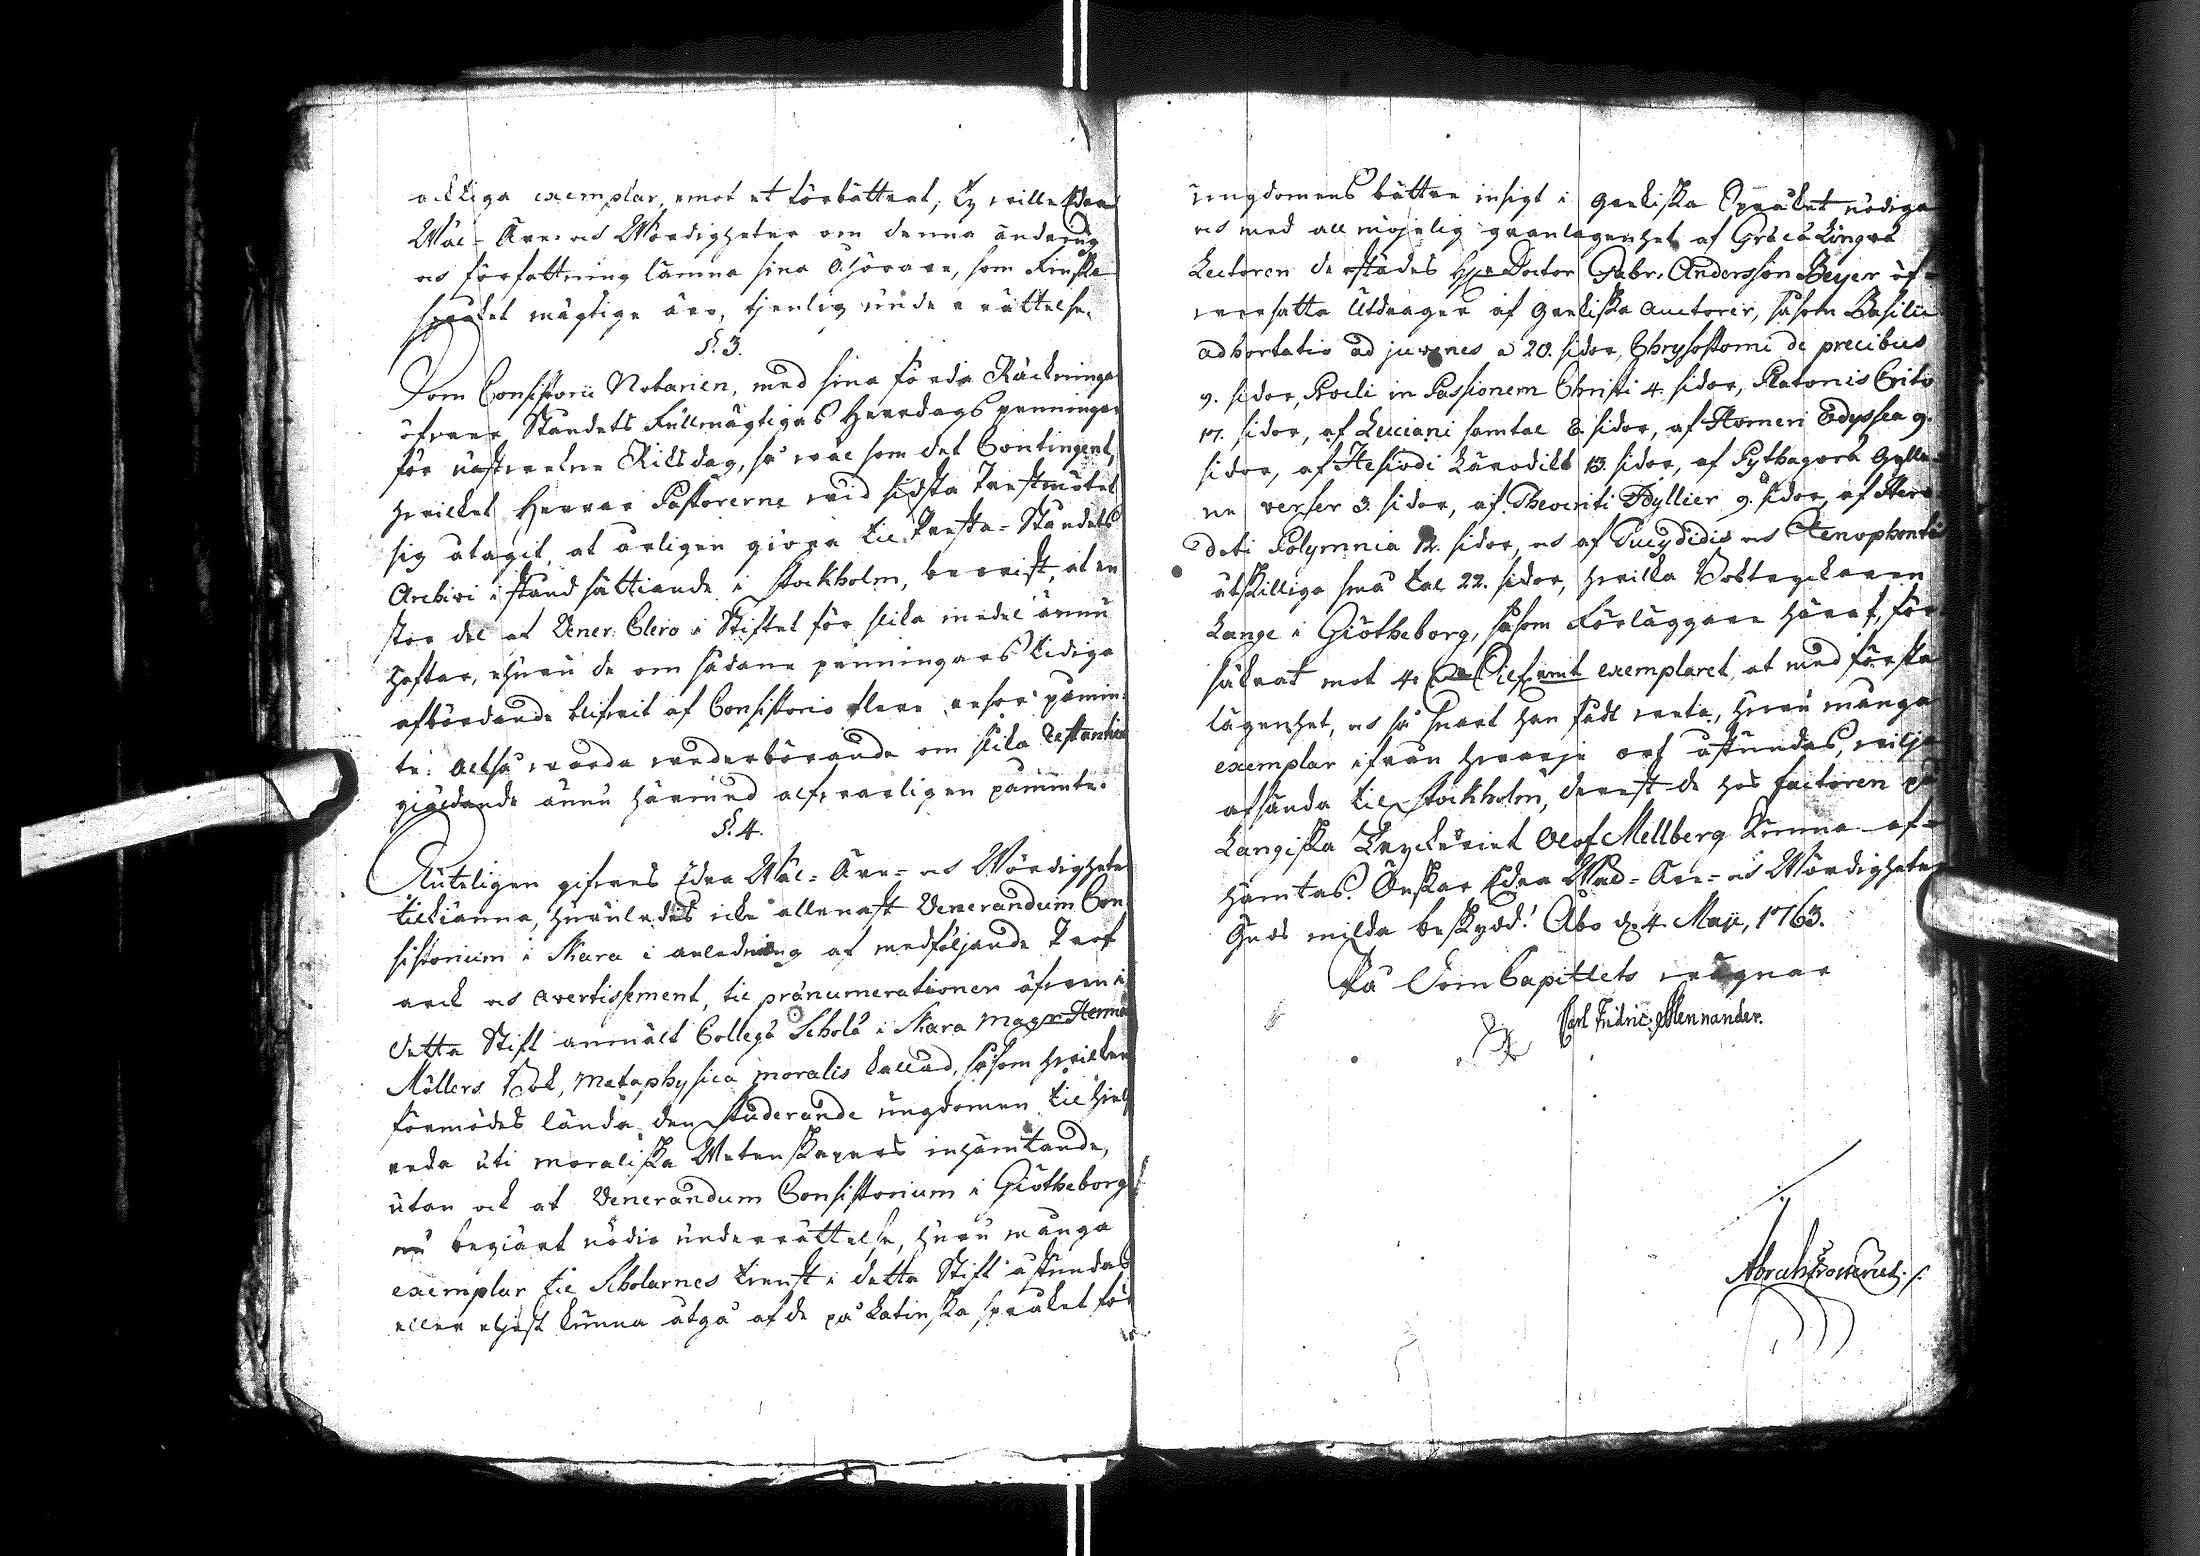 acktiga exemplar, emot et förbättrat; Ty wille Edra
Wäl- Äre- och Wördigheter om denna ändring
och författning lämna sina åhörare, som Finska
språket mägtige äro, tjenlig underrättelse.
§. 3.
Som Consistorii Notarien, med sina förda Räckningar
öfwer Ståndets Fullmägtigas Herredags penningar
för nästwekne Riksdag, så wäl som det Contingent,
hwilket Herrar Pastorerne wid sidsta Prestmötet
sig åtagit, at årligen giöra til Presta-Ståndets
Archivi i ständsättiande i Stockholm, bewist, at en
stor del af Vener. Clero i Stiftet för slika medel ännu
häftar, ehuru de om sådane penningars tidiga
afbördande blifwit af Consistorio flere resor påmin-
te: Altså warda wederbörande om slika restantiers
giäldande ännu härmed alfwarligen påminte.
§. 4.
Sluteligen gifwes Edra Wäl- Äre- och Wördigheter
tilkänna, huruledes icke allenast Venerandum Con
sistorium i Skara i anledning af medföljande Prof
arck och avertissement, til prænumerationen äfwen i
detta Stift anmält Collegæ Scholæ i Skara Mag:r Herman
Möllers Bok, Metaphysica moralis kallad, såsom hwilken
förmodes lända den studerande ungdomen til hielp
reda uti moraliska Wetenskapers inhämtande,
utan ock at Venerandum Consistorium i Giötheborg
nu begiärt nödig underrättelse, huru många
exemplar til Scholarnes tienst i detta Stift åstundas
eller eljest kunna utgå af de på Latinska språket för
ungdomens bättre insigt i Grekiska Språket nödiga
och med all möjelig granlagenhet af Græcæ Lingvæ
Lectoren derstädes H:r Doctor Gabr. Andersson Beyer öf-
wersatta Utdrager af Grekiska auctorer, såsom Basilii
adhortatio ad juvenes à 20. sidor, Chrysostomi de precibus
9. sidor, Procli in Passionem Christi 4. sidor, Platonis Crito
17. sidor, af Luciani samtal 8 sidor, af Homeri Odyssea 9.
sidor, af Hesiodi Lärodikt 13. sidor, af Pythagoræ Gylle
ne verser 3. sidor, af Theocriti Idyllier 9. sidor, af Hero
doti Polymnia 12. sidor, och af Tucydidis och Xenophontis
åtskilliga små tal 22. sidor, hwilka Boktryckaren
Lange i Giötheborg, såsom Förläggare häraf, för
säkrat mot 4. D:r Silf:rmt exemplaret, at med första
lägenhet, och så snart han fådt weta, huru många
exemplar ifrån hwarje ort åstundas, wilja
afsända til Stockholm, derest de hos factoren på
Langiska Tryckeriet Olof Mellberg kunna af-
hämtas. Önskar Edra Wäl- Äre- och Wördigheter
Guds milda beskydd! Åbo d. 4. Maji, 1763.
På Dom Capitlets wägnar
Carl Fridric Mennander.